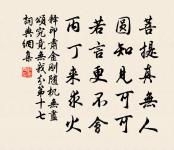 菩提真無人
圓知見可可
若言更不會
丙丁來求火
釋印肅金剛隨機無盡
頌究竟無我分第十七
詞典網集